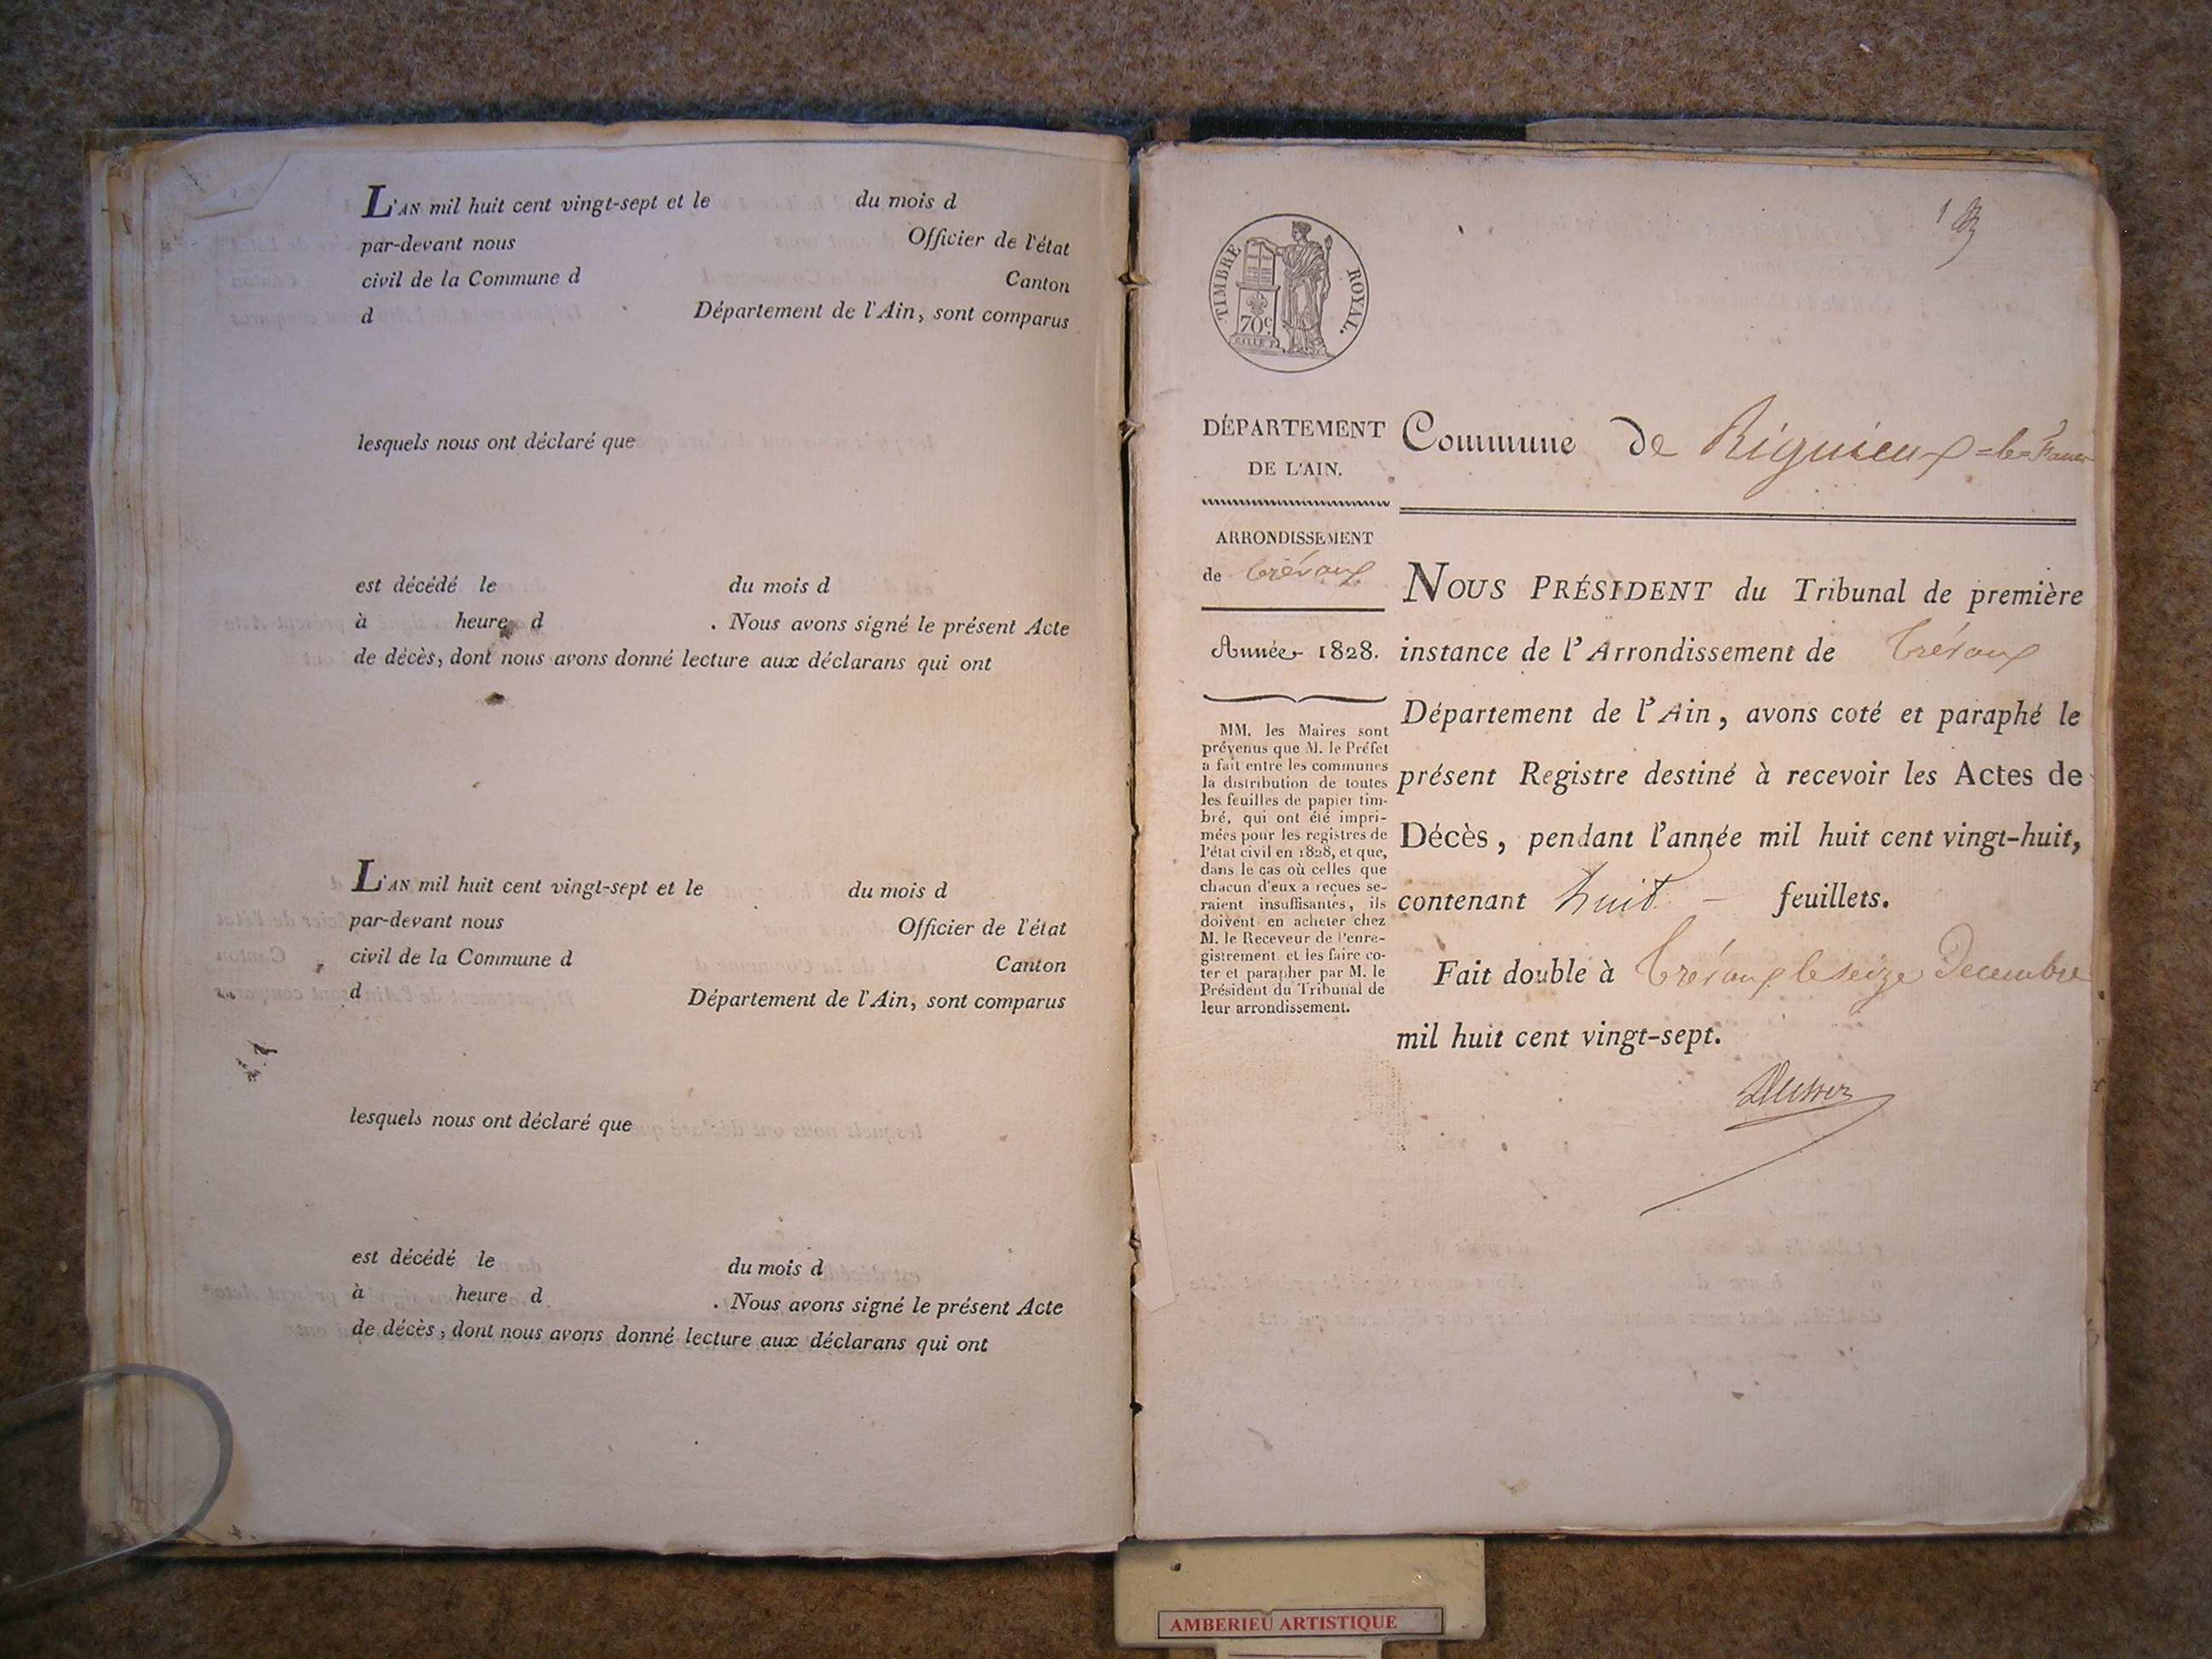 L'AN mil huit cent vingt-sept et le du mois d
par-devant nous Officier de l'état
civil de la Commune d Canton
d Département de l'Ain, sont comparus
lesquels nous ont déclaré que
est décédé le du mois d
à heure d . Nous avons signé le présent Acte
de décès, dont nous avons donné lecture aux déclarans qui ont
L'AN mil huit cent vingt-sept et le du mois d
par-devant nous Officier de l'état
civil de la Commune d Canton
d Département de l'Ain, sont comparus
lesquels nous ont déclaré que
est décédé le du mois d
à heure d . Nous avons signé le présent Acte
de décès, dont nous avons donné lecture aux déclarans qui ont
1
TIMBRE ROYAL.
70c.
DÉPARTEMENT
DE L'AIN.
ARRONDISSEMENT
de Trévoux
Année 1828.
MM. les Maires sont
prévenus que M. le Préfet
a fait entre les communes
la distribution de toutes
les feuilles de papier tim-
bré, qui ont été impri-
mées pour les registres de
l'état civil en 1828, et que,
dans le cas où celles que
chacun d'eux a reçues se-
raient insuffisantes, ils
doivent en acheter chez
M. le Receveur de l'enre-
gistrement et les faire co-
ter et parapher par M. le
Président du Tribunal de
leur arrondissement.
Commune de Rignieux=le=Franc
NOUS PRÉSIDENT du Tribunal de première
instance de l'Arrondissement de Trévoux
Département de l'Ain, avons coté et paraphé le
présent Registre destiné à recevoir les Actes de
Décès, pendant l'année mil huit cent vingt-huit,
contenant huit – feuillets.
Fait double à Trévoux le seize Decembre
mil huit cent vingt-sept.
AMBERIEU ARTISTIQUE